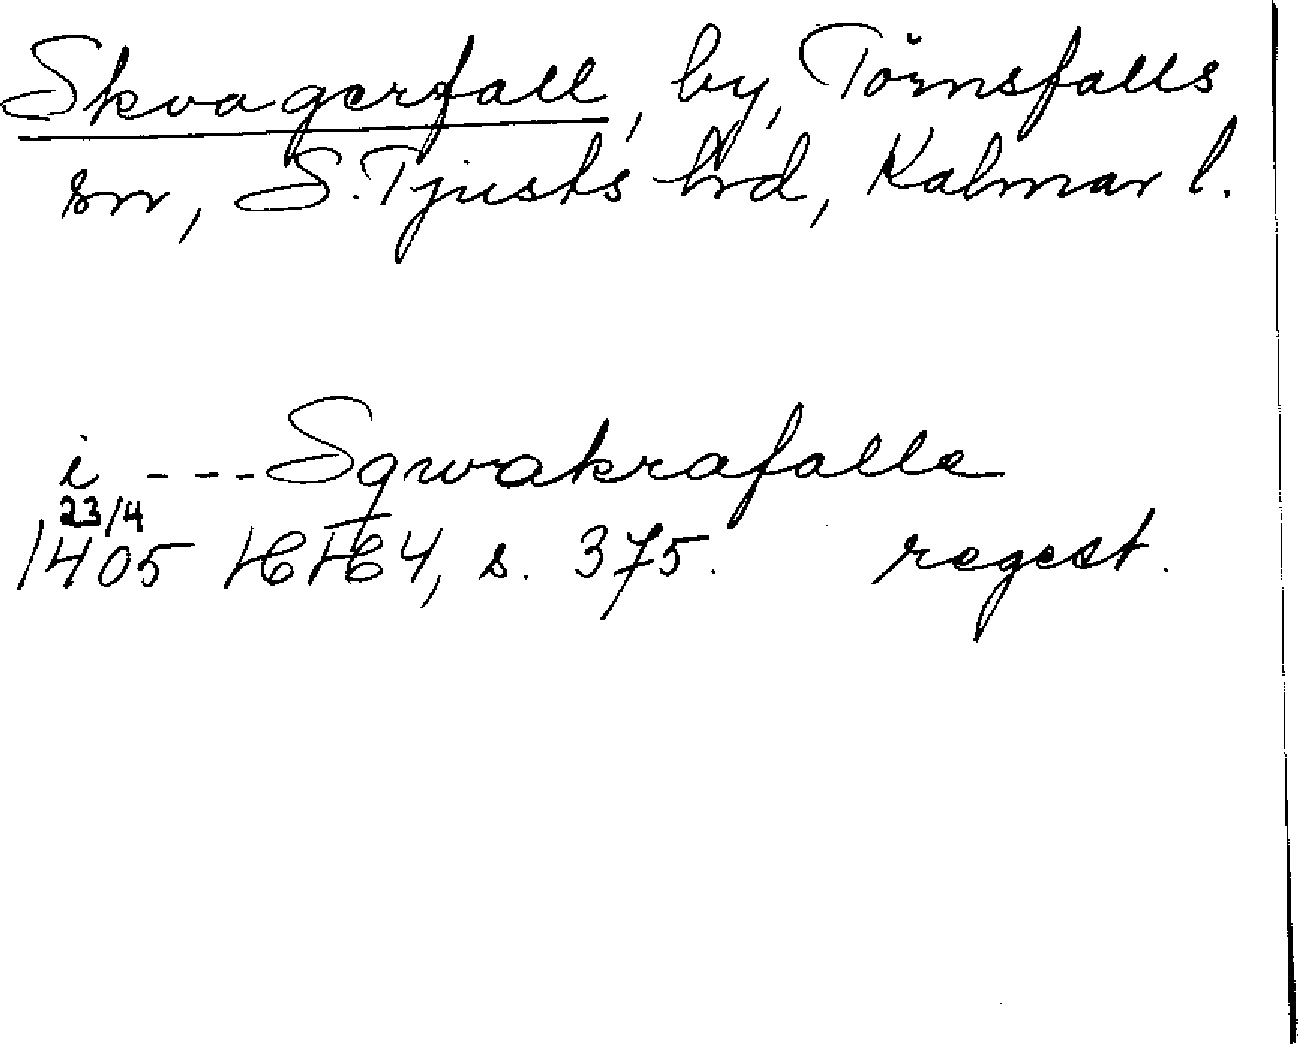 Skvagerfall, by, Törnsfalls
sn, S. Tjusts hd, Kalmar l.
i --- Sqwakrafalle
23/4
1405 HFH 4, s. 375. regest.